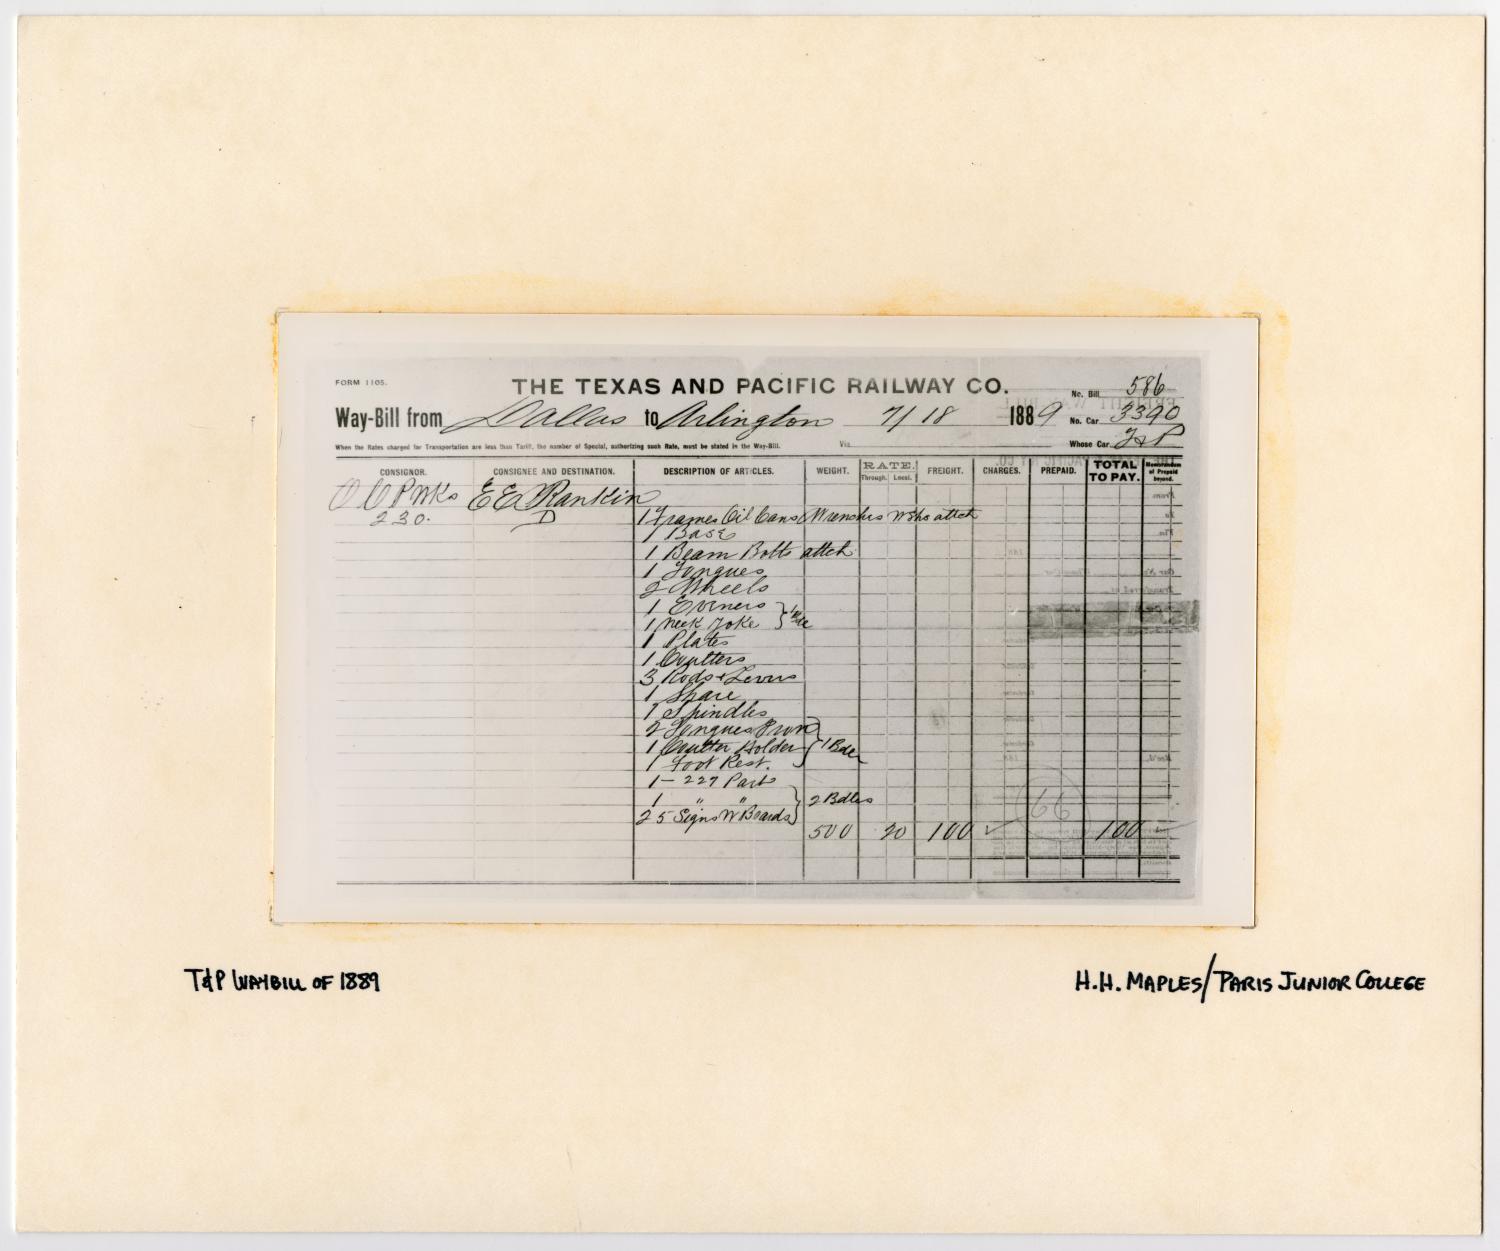 FORM 1105.
THE TEXAS AND PACIFIC RAILWAY CO.
No. Bill 586
Way-Bill from Dallas to Arlington 7/18 1889 No. Car 3390
When the Rates charged for Transportation are less than Tariff, the number of Special, authorizing such Rate, must be stated in the Way-Bill. Via Whose Car T&P
CONSIGNOR. CONSIGNEE AND DESTINATION. DESCRIPTION OF ARTICLES. WEIGHT. RATE. Through. Local. FREIGHT. CHARGES. PREPAID. TOTAL TO PAY. Memorandum of Prepaid beyond.
O C P Wks E E Rankin
230. D 1 Frames Oil Cans Wrenches attch
1 Base
1 Beam Bolts attch
1 Tongues
2 Wheels
1 Eveners
1 Neck Yoke } 1 Bdle
1 Plates
1 Coulters
3 Rods & Levers
1 Share
1 Spindles
2 Tongues Iron
1 Coulter Holder } 1 Bdle
1 Foot Rest.
1 - 227 Part
1 " " } 2 Bdles
25 Signs W Boards
500 20 100 ✓ 100
66
T&P WAYBILL OF 1889
H.H. MAPLES/PARIS JUNIOR COLLEGE